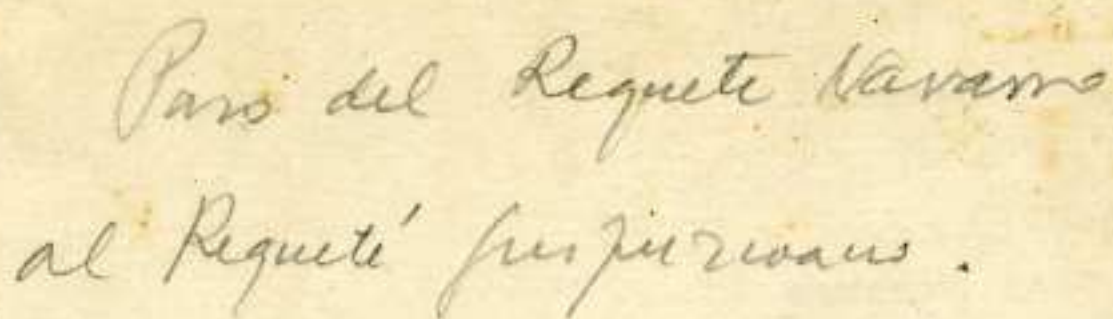 Paso del Requete Navarro
al Requeté guipuzcoano.